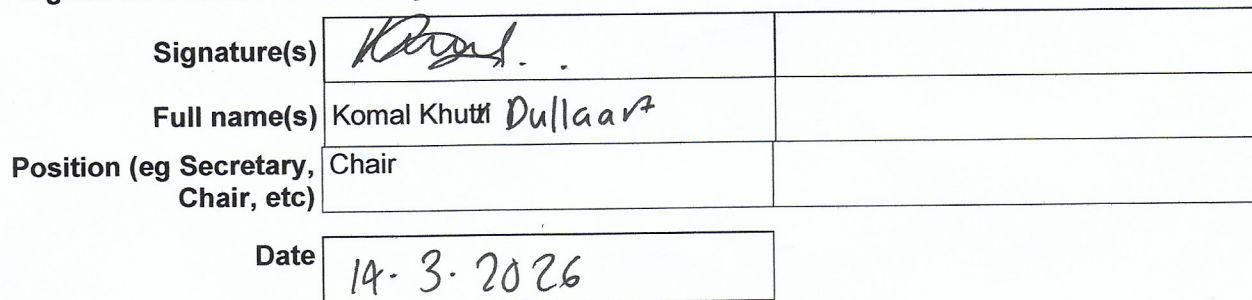 Signature(s)
Full name(s) Komal Khutti Dullaart
Position (eg Secretary, Chair
Chair, etc)
Date 14.3.2026